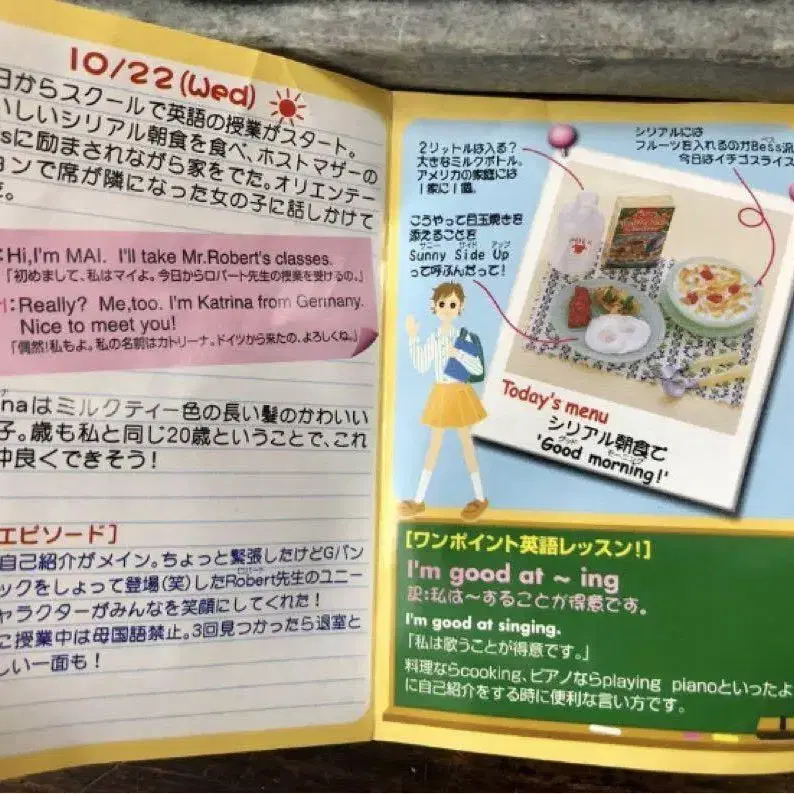 10/22(Wed)
日からスクールで英語の授業がスタート。
いしいシリアル朝食を食べ、ホストマザーの
ssに励まされながら家をでた。オリエンテー
ョンで席が隣になった女の子に話しかけて
:Hi,I'm MAI. I'll take Mr.Robert's classes.
「初めまして、私はマイよ。今日からロバート先生の授業を受けるの。」
:Really? Me,too. I'm Katrina from Germany.
Nice to meet you!
「偶然!私もよ。私の名前はカトリーナ。ドイツから来たの、よろしくね。」
naはミルクティー色の長い髪のかわいい
子。歳も私と同じ20歳ということで、これ
仲良くできそう!
エピソード]
自己紹介がメイン。ちょっと緊張したけどGパン
ックをしょって登場(笑)したRobert先生のユニー
ャラクターがみんなを笑顔にしてくれた!
に授業中は母国語禁止。3回見つかったら退室と
しい一面も!
2リットルは入る?
大きなミルクボトル。
アメリカの家庭には
1家に1個。
シリアルには
フルーツを入れるのがBess流
ベス
今日はイチゴスライス
こうやって目玉焼きを
添えることを
サニー サイド アップ
Sunny Side Up
って呼ぶんだって!
MILK
Today's menu
シリアル朝食で
グッド モーニング
'Good morning!'
[ワンポイント英語レッスン!]
I'm good at ~ ing
訳:私は~することが得意です。
I'm good at singing.
「私は歌うことが得意です。」
料理ならcooking、ピアノならplaying pianoといったよ
に自己紹介をする時に便利な言い方です。